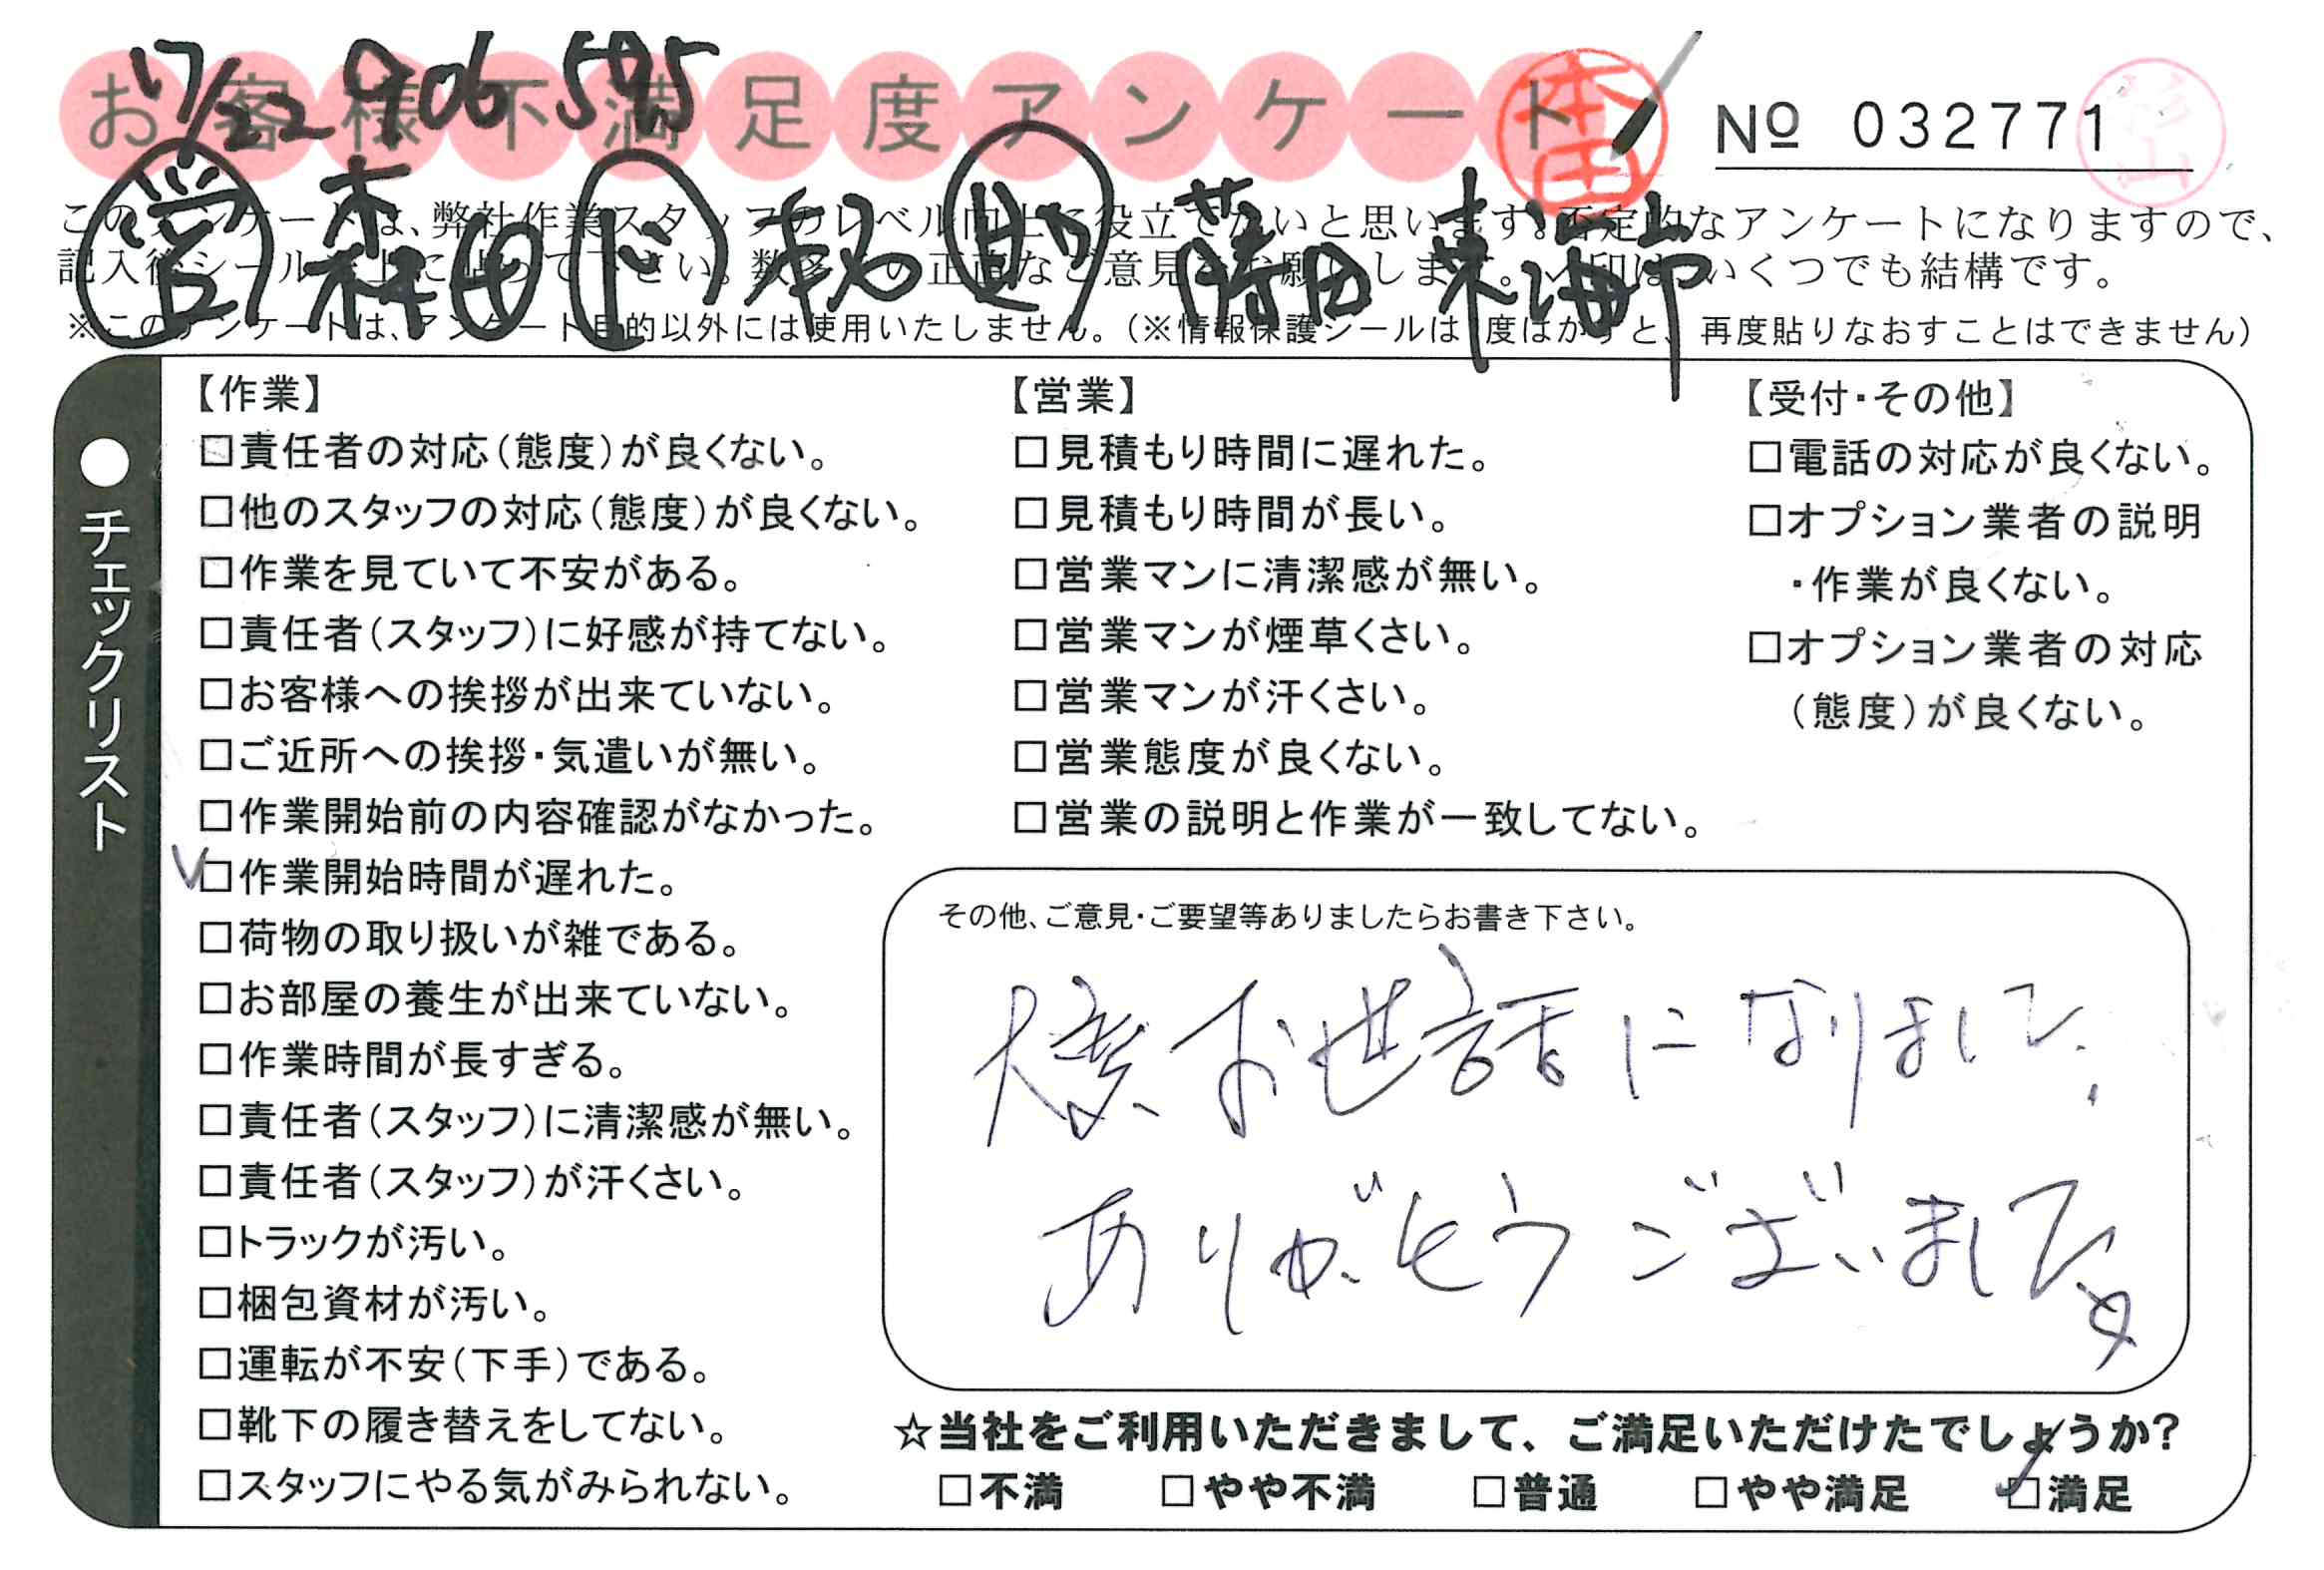 17/22 906 595
お客様不満足度アンケート
本田
№ 032771
杉山
森田
このアンケートは、弊社作業スタッフのレベル向上に役立てたいと思います。否定的なアンケートになりますので、
記入後シールを上に貼って下さい。数多くの正直なご意見をお願いします。✓印は、いくつでも結構です。
※このアンケートは、アンケート目的以外には使用いたしません。（※情報保護シールは1度はがすと、再度貼りなおすことはできません）
●チェックリスト
【作業】
□責任者の対応（態度）が良くない。
□他のスタッフの対応（態度）が良くない。
□作業を見ていて不安がある。
□責任者（スタッフ）に好感が持てない。
□お客様への挨拶が出来ていない。
□ご近所への挨拶・気遣いが無い。
□作業開始前の内容確認がなかった。
✓□作業開始時間が遅れた。
□荷物の取り扱いが雑である。
□お部屋の養生が出来ていない。
□作業時間が長すぎる。
□責任者（スタッフ）に清潔感が無い。
□責任者（スタッフ）が汗くさい。
□トラックが汚い。
□梱包資材が汚い。
□運転が不安（下手）である。
□靴下の履き替えをしてない。
□スタッフにやる気がみられない。
【営業】
□見積もり時間に遅れた。
□見積もり時間が長い。
□営業マンに清潔感が無い。
□営業マンが煙草くさい。
□営業マンが汗くさい。
□営業態度が良くない。
□営業の説明と作業が一致してない。
【受付・その他】
□電話の対応が良くない。
□オプション業者の説明
・作業が良くない。
□オプション業者の対応
（態度）が良くない。
その他、ご意見・ご要望等ありましたらお書き下さい。
お世話になりまして、
ありがとうございました。
☆当社をご利用いただきまして、ご満足いただけたでしょうか？
□不満 □やや不満 □普通 □やや満足 ✓□満足